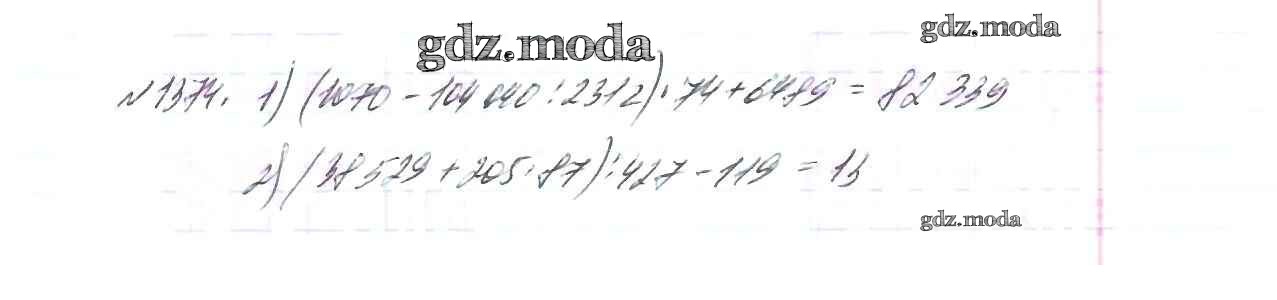 gdz.moda
gdz.moda
№1374. 1) (1070 - 104 040 : 2312) · 74 + 6489 = 82 339
2) (38529 + 205 · 87) : 427 - 119 = 13
gdz.moda